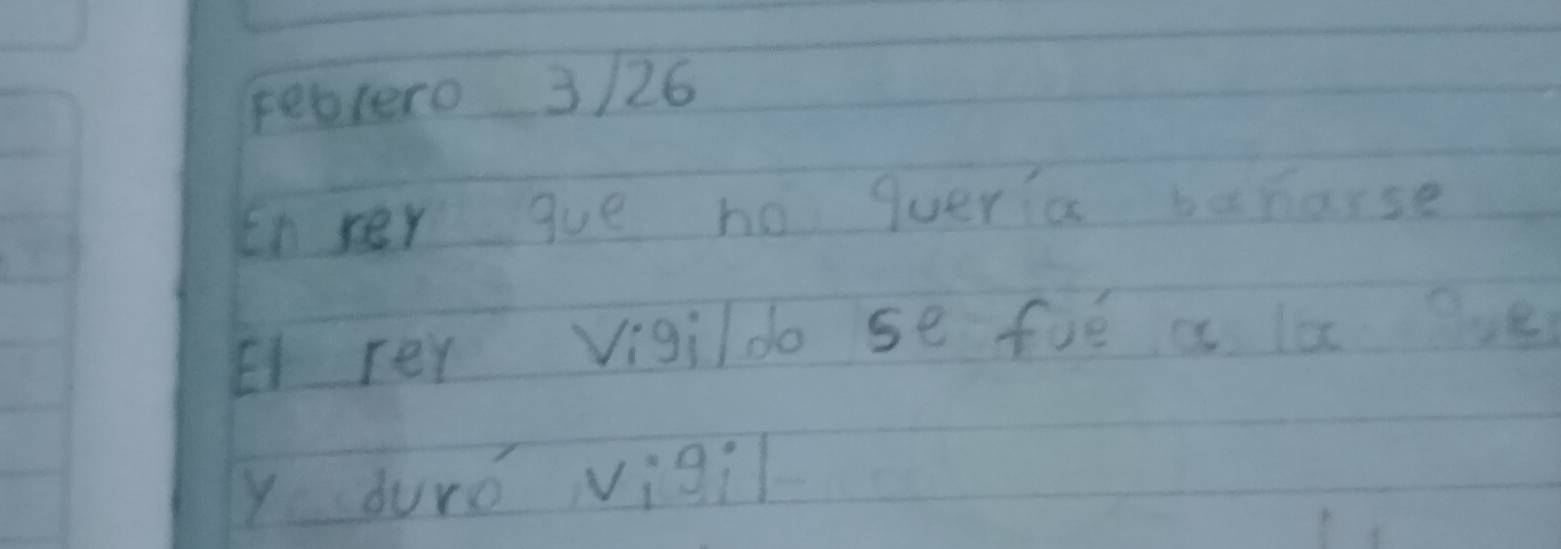 Febrero 3/26
En rey que no quería bañarse
El rey Vigildo se fué a la
y duró vigil